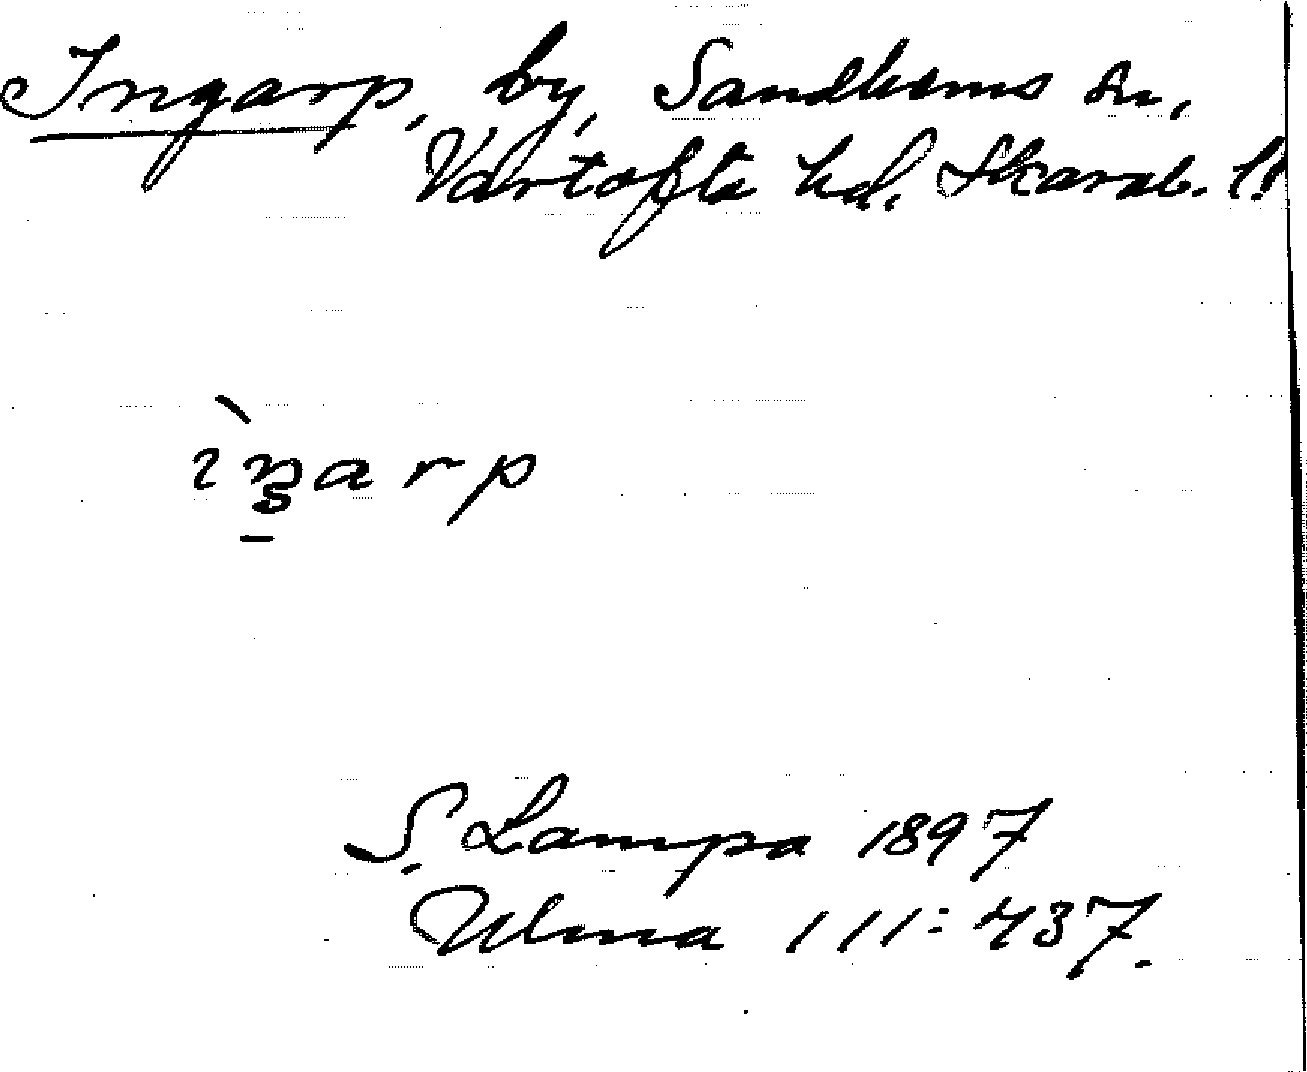 Ingarp, by, Sandhems sn,
Vartofta hd. Skarab. l.
ìŋarp
S. Lampa 1897
Ulma 111:437.